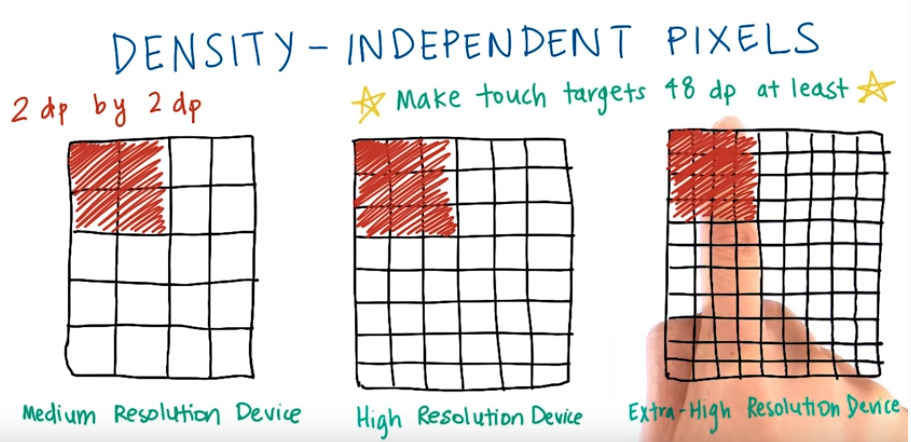 DENSITY-INDEPENDENT PIXELS
2 dp by 2 dp
Make touch targets 48 dp at least
Medium Resolution Device
High Resolution Device
Extra-High Resolution Device